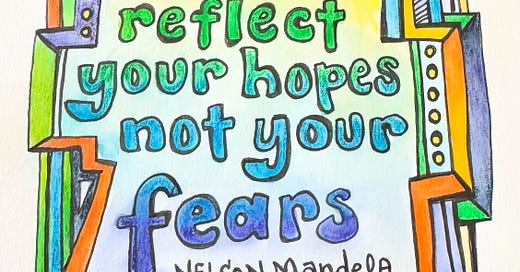 reflect
your hopes
not your
fears
NELSON Mandela